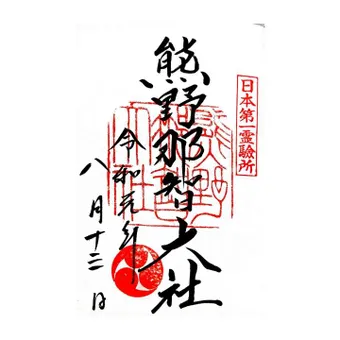 日本第一霊験所
熊野那智大社
令和元年
八月十二日